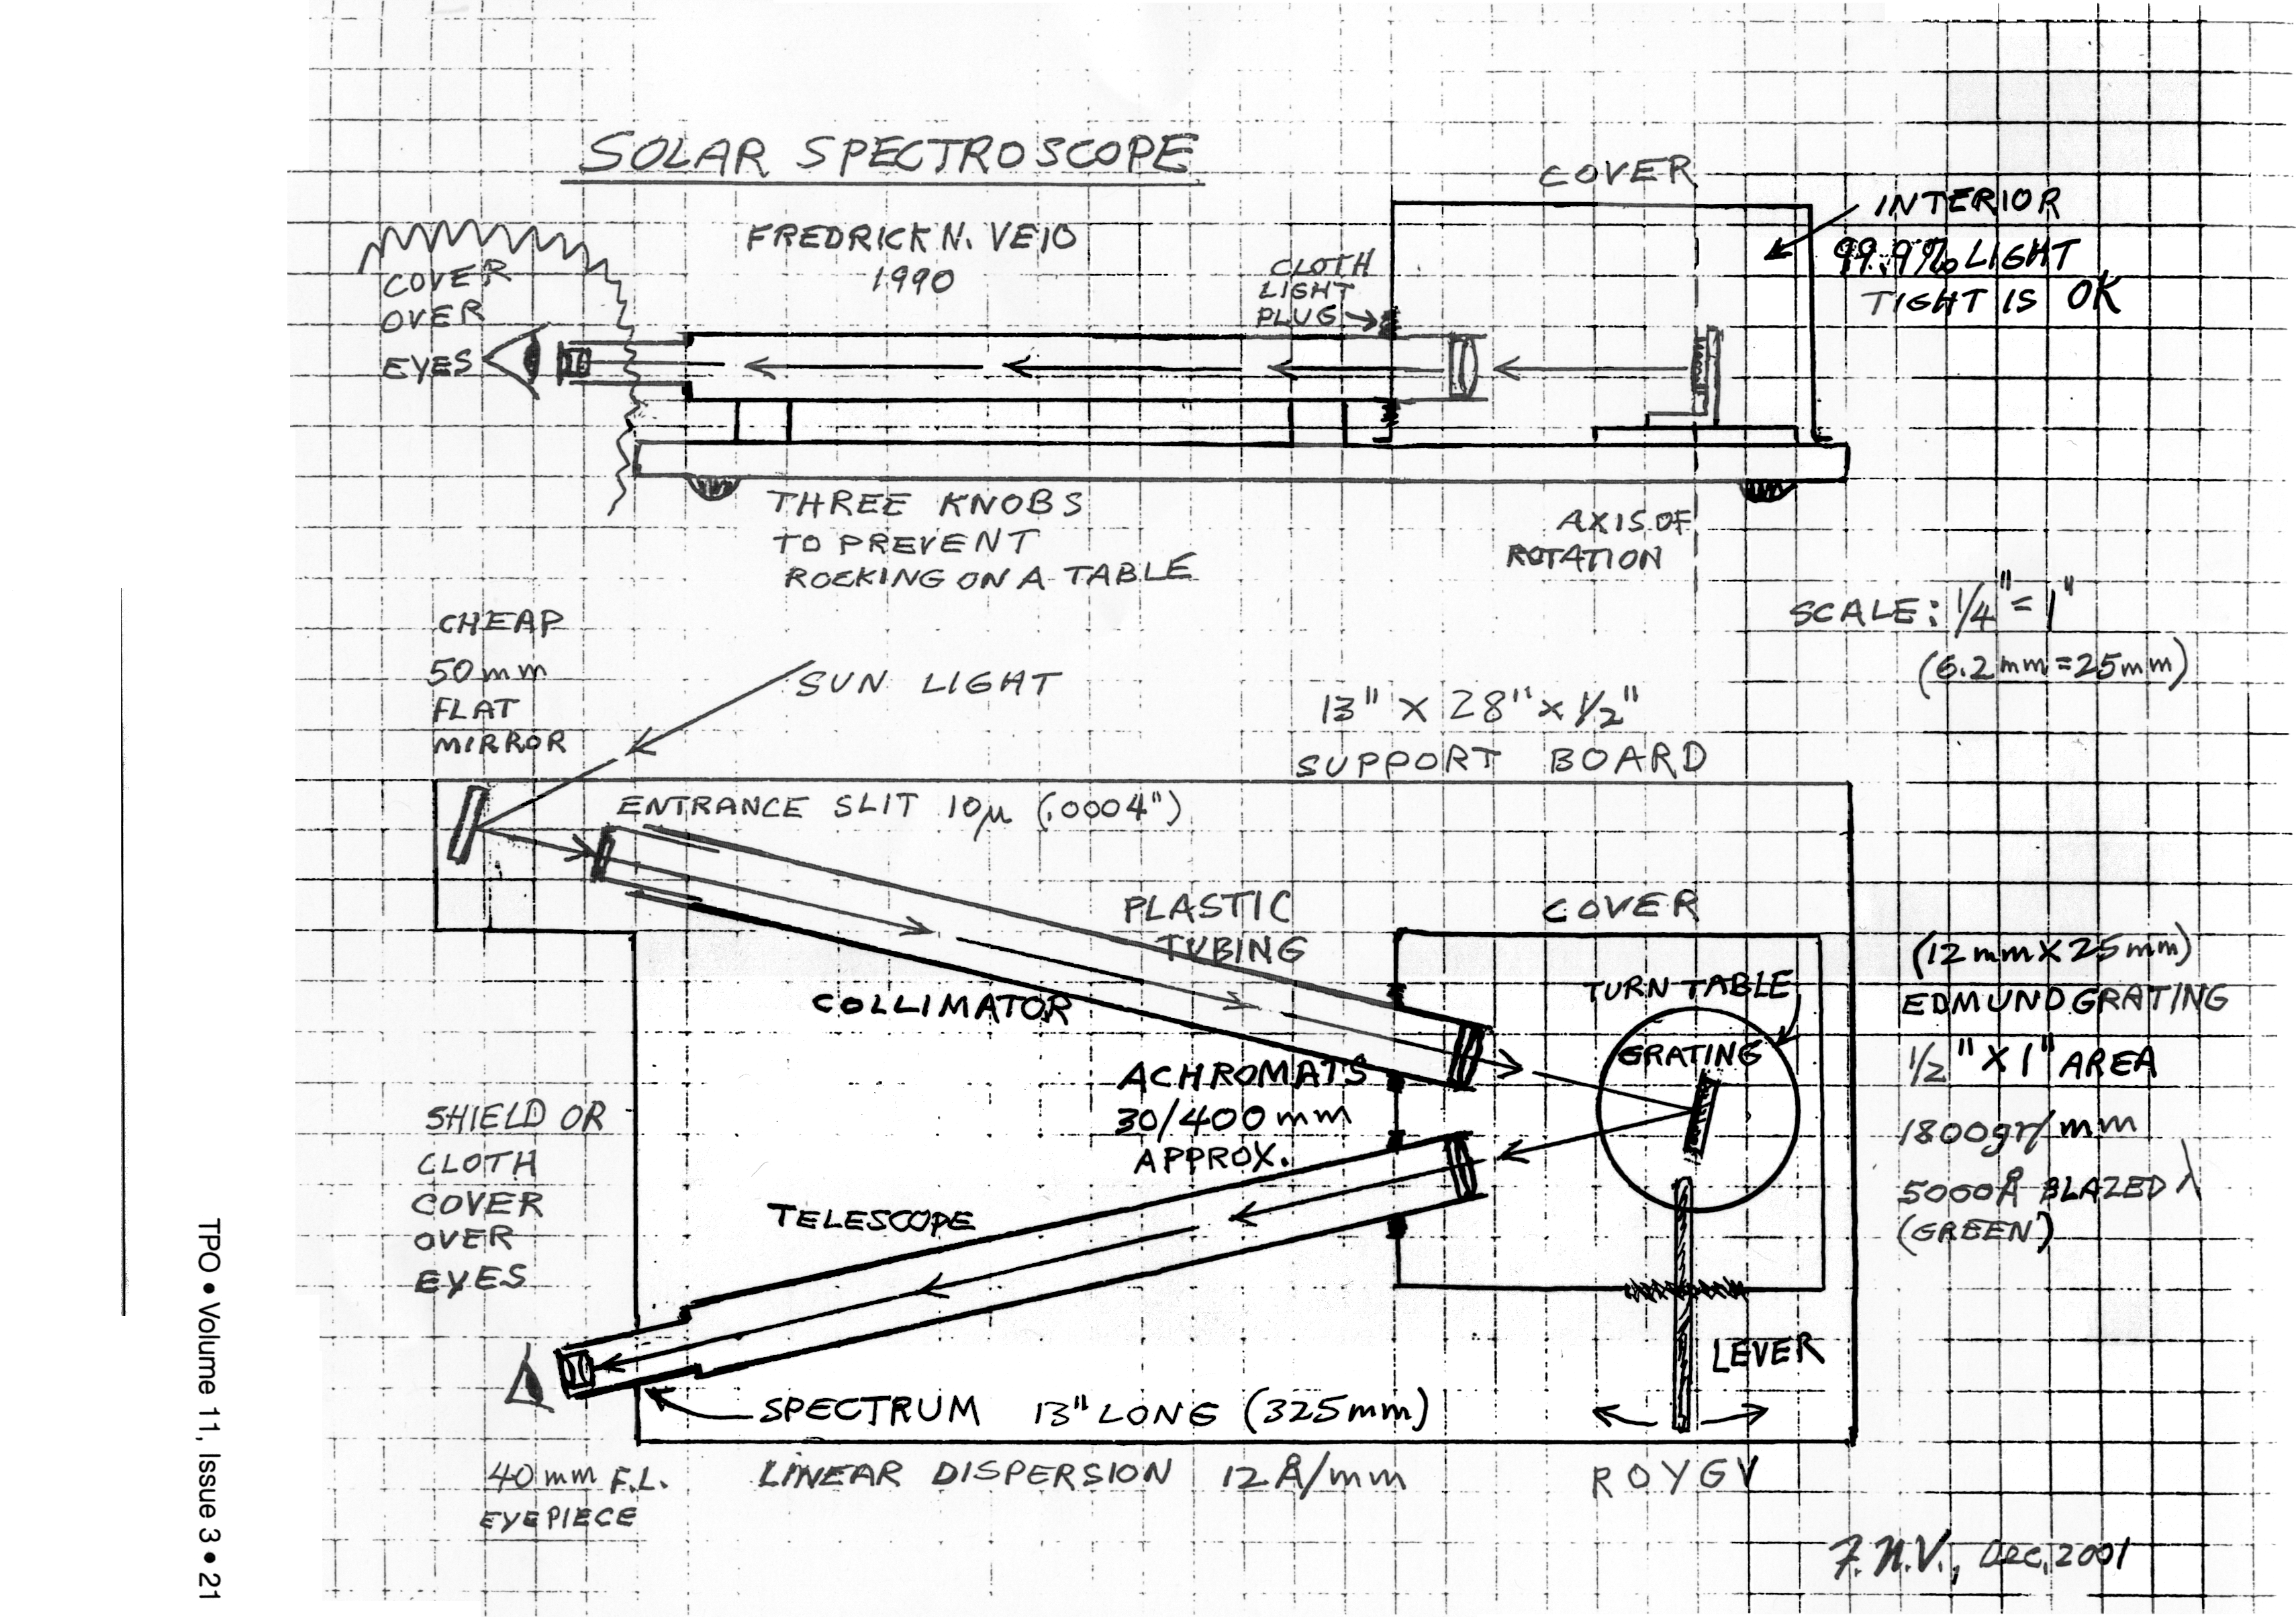 SOLAR SPECTROSCOPE
FREDRICK N. VEIO
1990
COVER
INTERIOR
99.9% LIGHT
TIGHT IS OK
COVER
OVER
EYES
CLOTH
LIGHT
PLUG
THREE KNOBS
TO PREVENT
ROCKING ON A TABLE
AXIS OF
ROTATION
SCALE: 1/4" = 1"
(6.2mm = 25mm)
CHEAP
50mm
FLAT
MIRROR
SUN LIGHT
13" X 28" X 1/2"
SUPPORT BOARD
ENTRANCE SLIT 10µ (.0004")
PLASTIC
TUBING
COVER
COLLIMATOR
TURN TABLE
GRATING
(12mm X 25mm)
EDMUND GRATING
1/2" X 1" AREA
1800gr/mm
5000Å BLAZED λ
(GREEN)
ACHROMATS
30/400mm
APPROX.
SHIELD OR
CLOTH
COVER
OVER
EYES
TELESCOPE
LEVER
SPECTRUM 13" LONG (325mm)
40mm F.L.
EYEPIECE
LINEAR DISPERSION 12Å/mm
R O Y G V
F.N.V., DEC, 2001
TPO • Volume 11, Issue 3 • 21